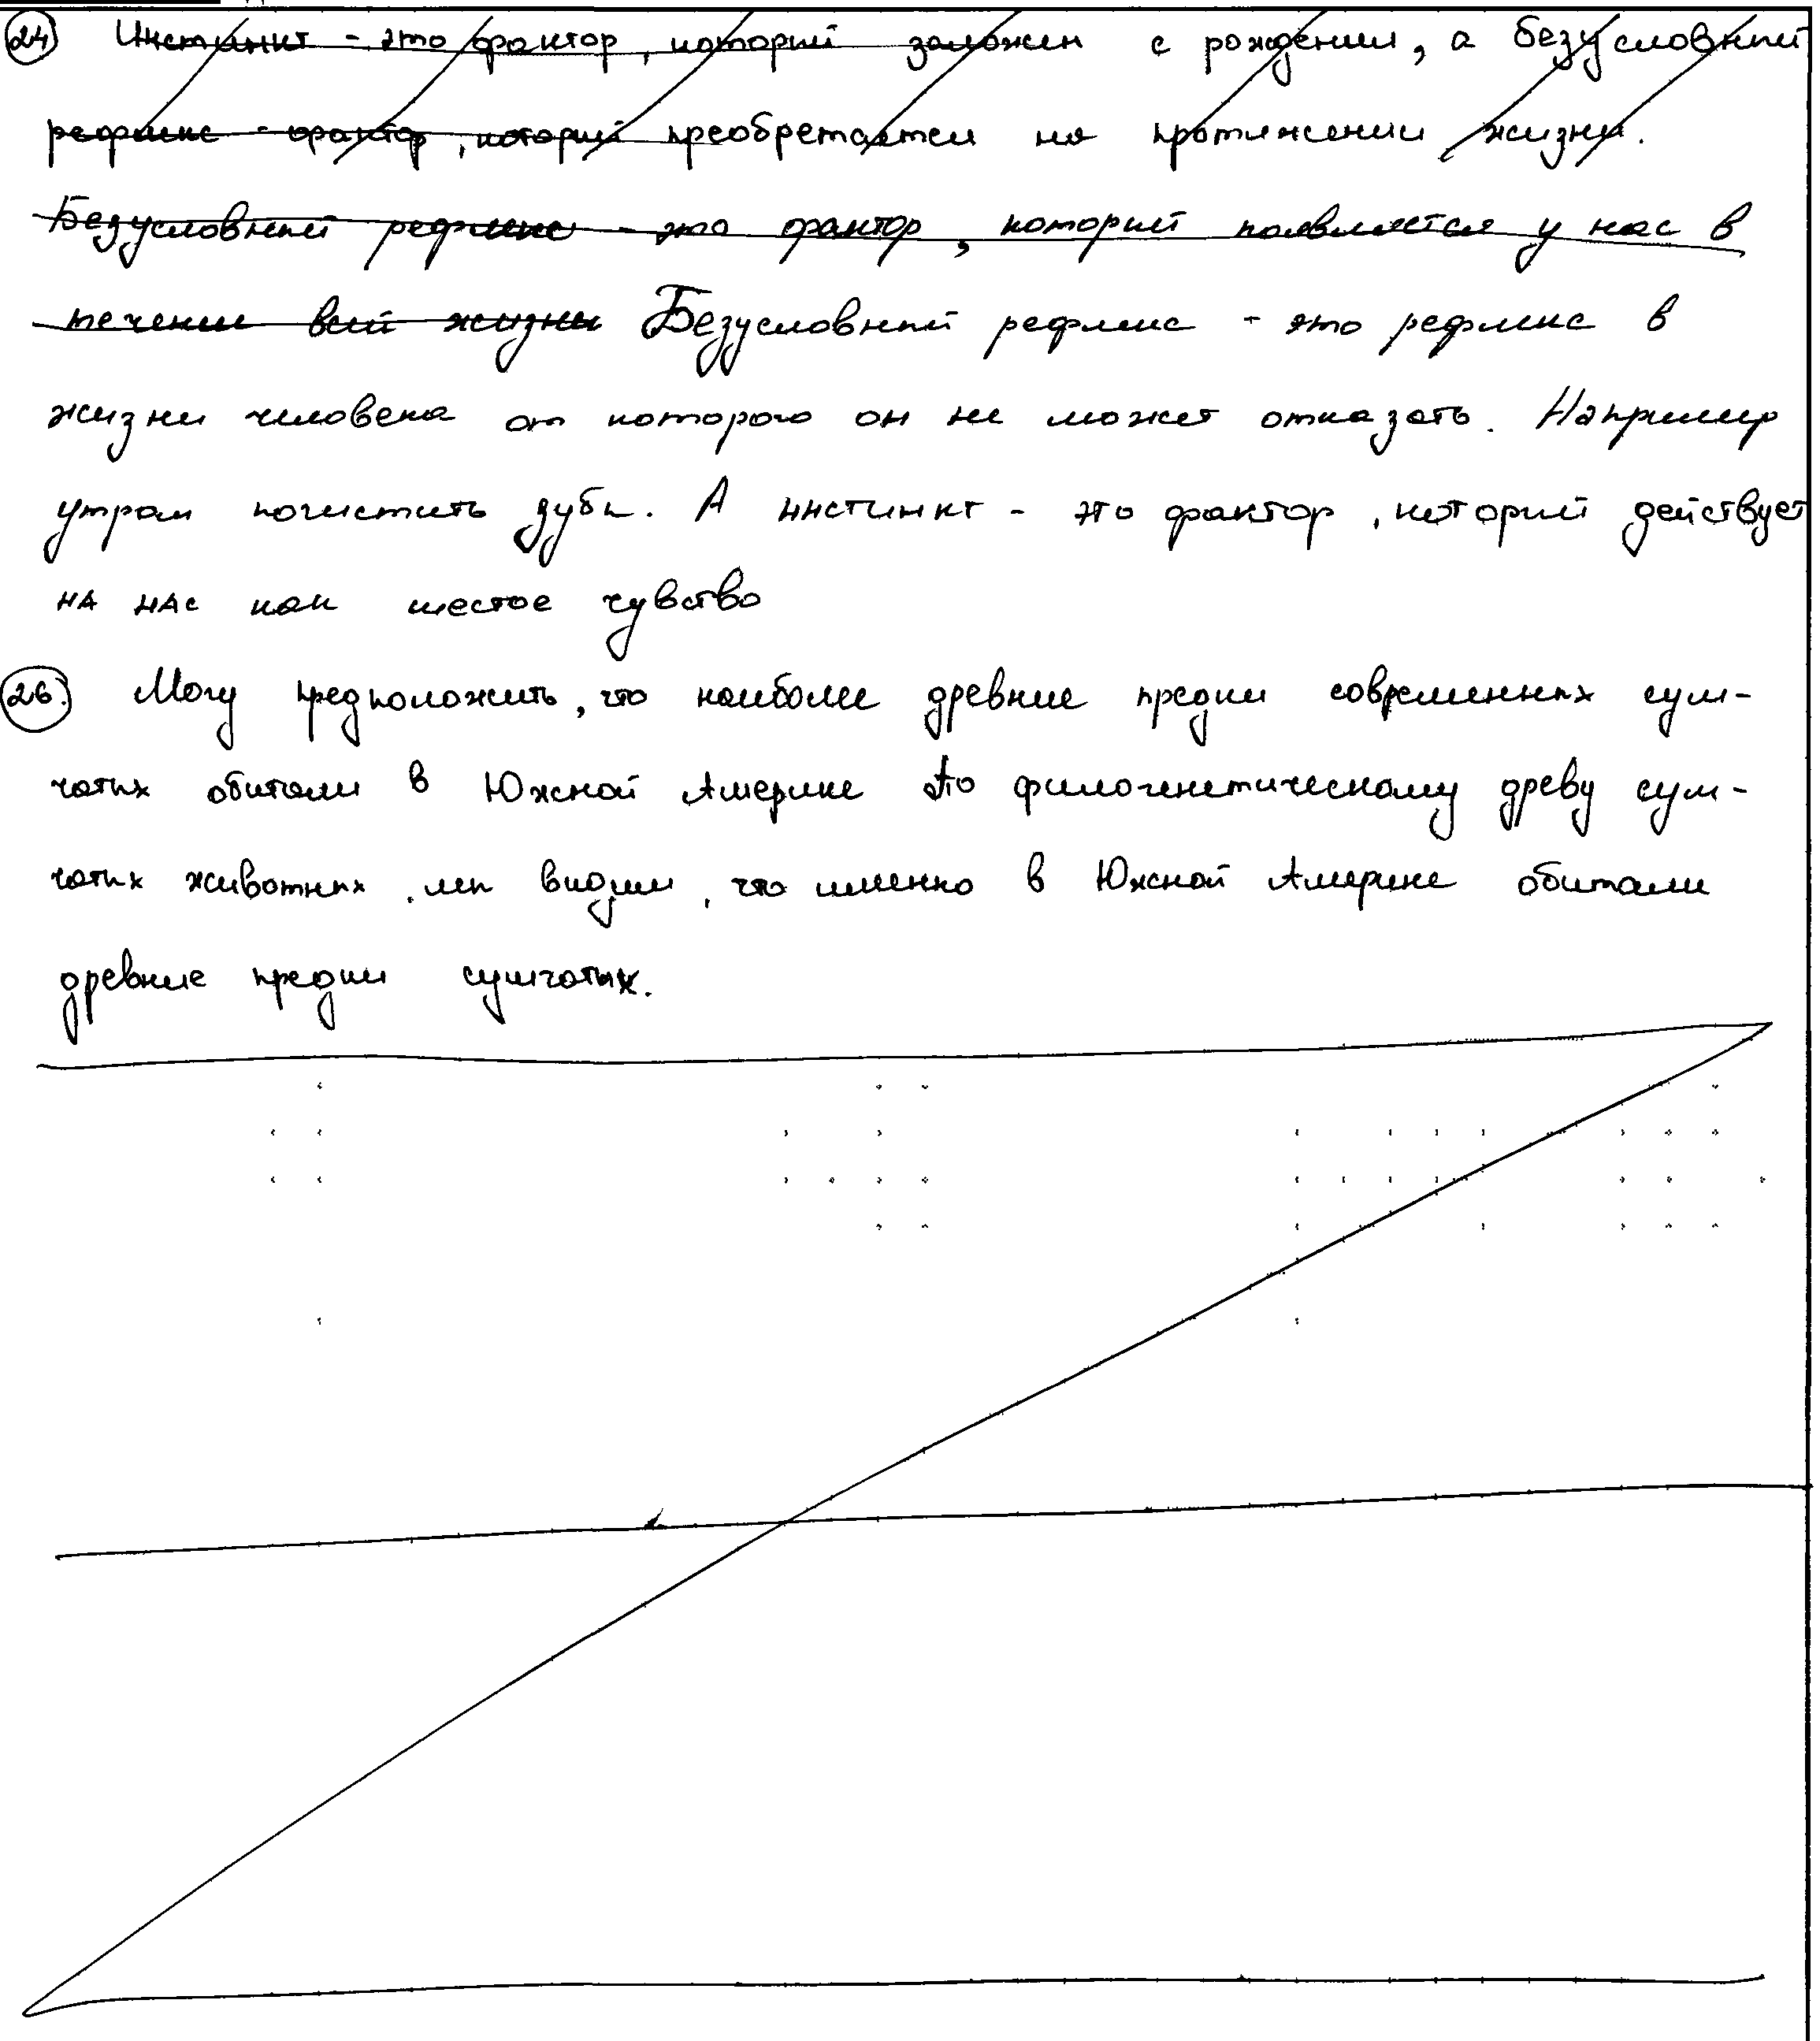 24) Инстинкт - это фактор, который заложен с рождения, а безусловный
рефлекс - фактор, который преобретается на протяжении жизни.
Безусловный рефлекс - это фактор, который появляется у нас в
течении всей жизни Безусловный рефлекс - это рефлекс в
жизни человека от которого он не может отказать. Например
утром почистить зубы. А инстинкт - это фактор, который действует
на нас как шестое чувство
26. Могу предположить, что наиболее древние предки современных сум-
чатых обитали в Южной Америке По филогенетическому древу сум-
чатых животных, мы видим, что именно в Южной Америке обитали
древние предки сумчатых.